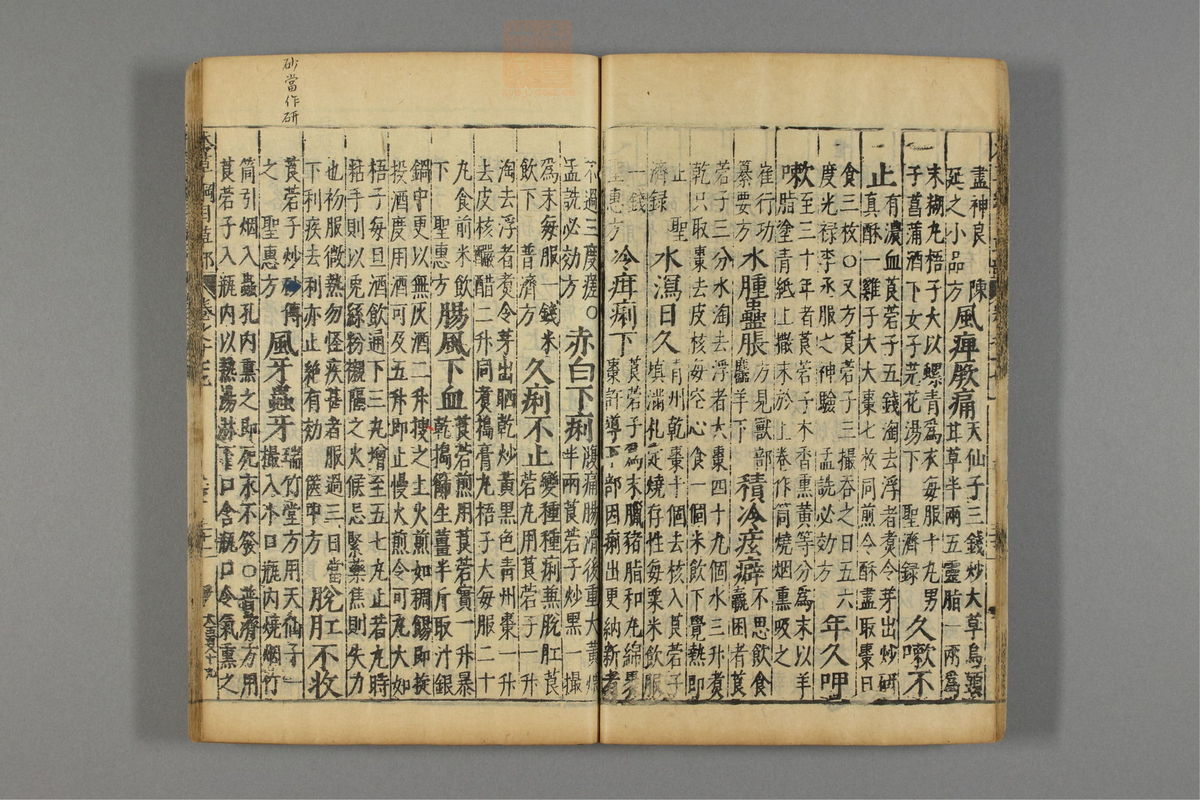 盡神良 陳
延之小品方
風痺厥痛
天仙子三錢炒大草烏頭
甘草半兩五靈脂一兩為
末糊丸梧子大以螺青為衣每服十丸男
子菖蒲酒下女子芫花湯下 聖濟錄
久嗽不
止
有濃血莨菪子五錢淘去浮者煮令芽出炒研
真酥一雞子大大棗七枚同煎令酥盡取棗日
食三枚〇又方莨菪子三撮吞之日五六
度光祿李丞服之神驗 孟詵必効方
年久呷
嗽
至三十年者莨菪子木香熏黃等分為末以羊
脂塗青紙上撒末於上卷作筒燒烟熏吸之
崔行功
纂要方
水腫蠱脹
方見獸部
麢羊下
積冷痃癖
不思飲食
羸困者莨
菪子三分水淘去浮者大棗四十九個水三升煮
乾只取棗去皮核每空心食一個米飲下覺熱即
止 聖
濟錄
水瀉日久
青州乾棗十個去核入莨菪子
填滿扎定燒存性每粟米飲服
一錢
聖惠方
冷疳痢下
莨菪子為末臘豬脂和丸綿裹
棗許導下部因痢出更納新者
不過三度瘥〇
孟詵必効方
赤白下痢
腹痛腸滑後重大黃煨
半兩莨菪子炒黑一撮
為末每服一錢米
飲下 普濟方
久痢不止
變種種痢兼脫肛莨
菪丸用莨菪子一升
淘去浮者煮令芽出晒乾炒黃黑色青州棗一升
去皮核釅醋二升同煮搗膏丸梧子大每服二十
丸食前米飲
下 聖惠方
腸風下血
莨菪煎用莨菪實一升暴
乾搗篩生薑半斤取汁銀
鍋中更以無灰酒二升搜之上火煎如稠餳即旋
投酒度用酒可及五升即止慢火煎令可丸大如
梧子每旦酒飲通下三丸增至五七丸止若丸時
粘手則以兔絲粉襯隔之火候忌緊藥焦則失力
也初服微熱勿怪疾甚者服過三日當
下利疾去利亦止絕有効 篋中方
脫肛不收
砂當作研
莨菪子炒傅
之 聖惠方
風牙蟲牙
瑞竹堂方用天仙子一
撮入小口瓶內燒烟竹
筒引烟入蟲孔內熏之即死永不發〇普濟方用
莨菪子入瓶內以熱湯淋下口含瓶口令氣熏之
本草綱目草部